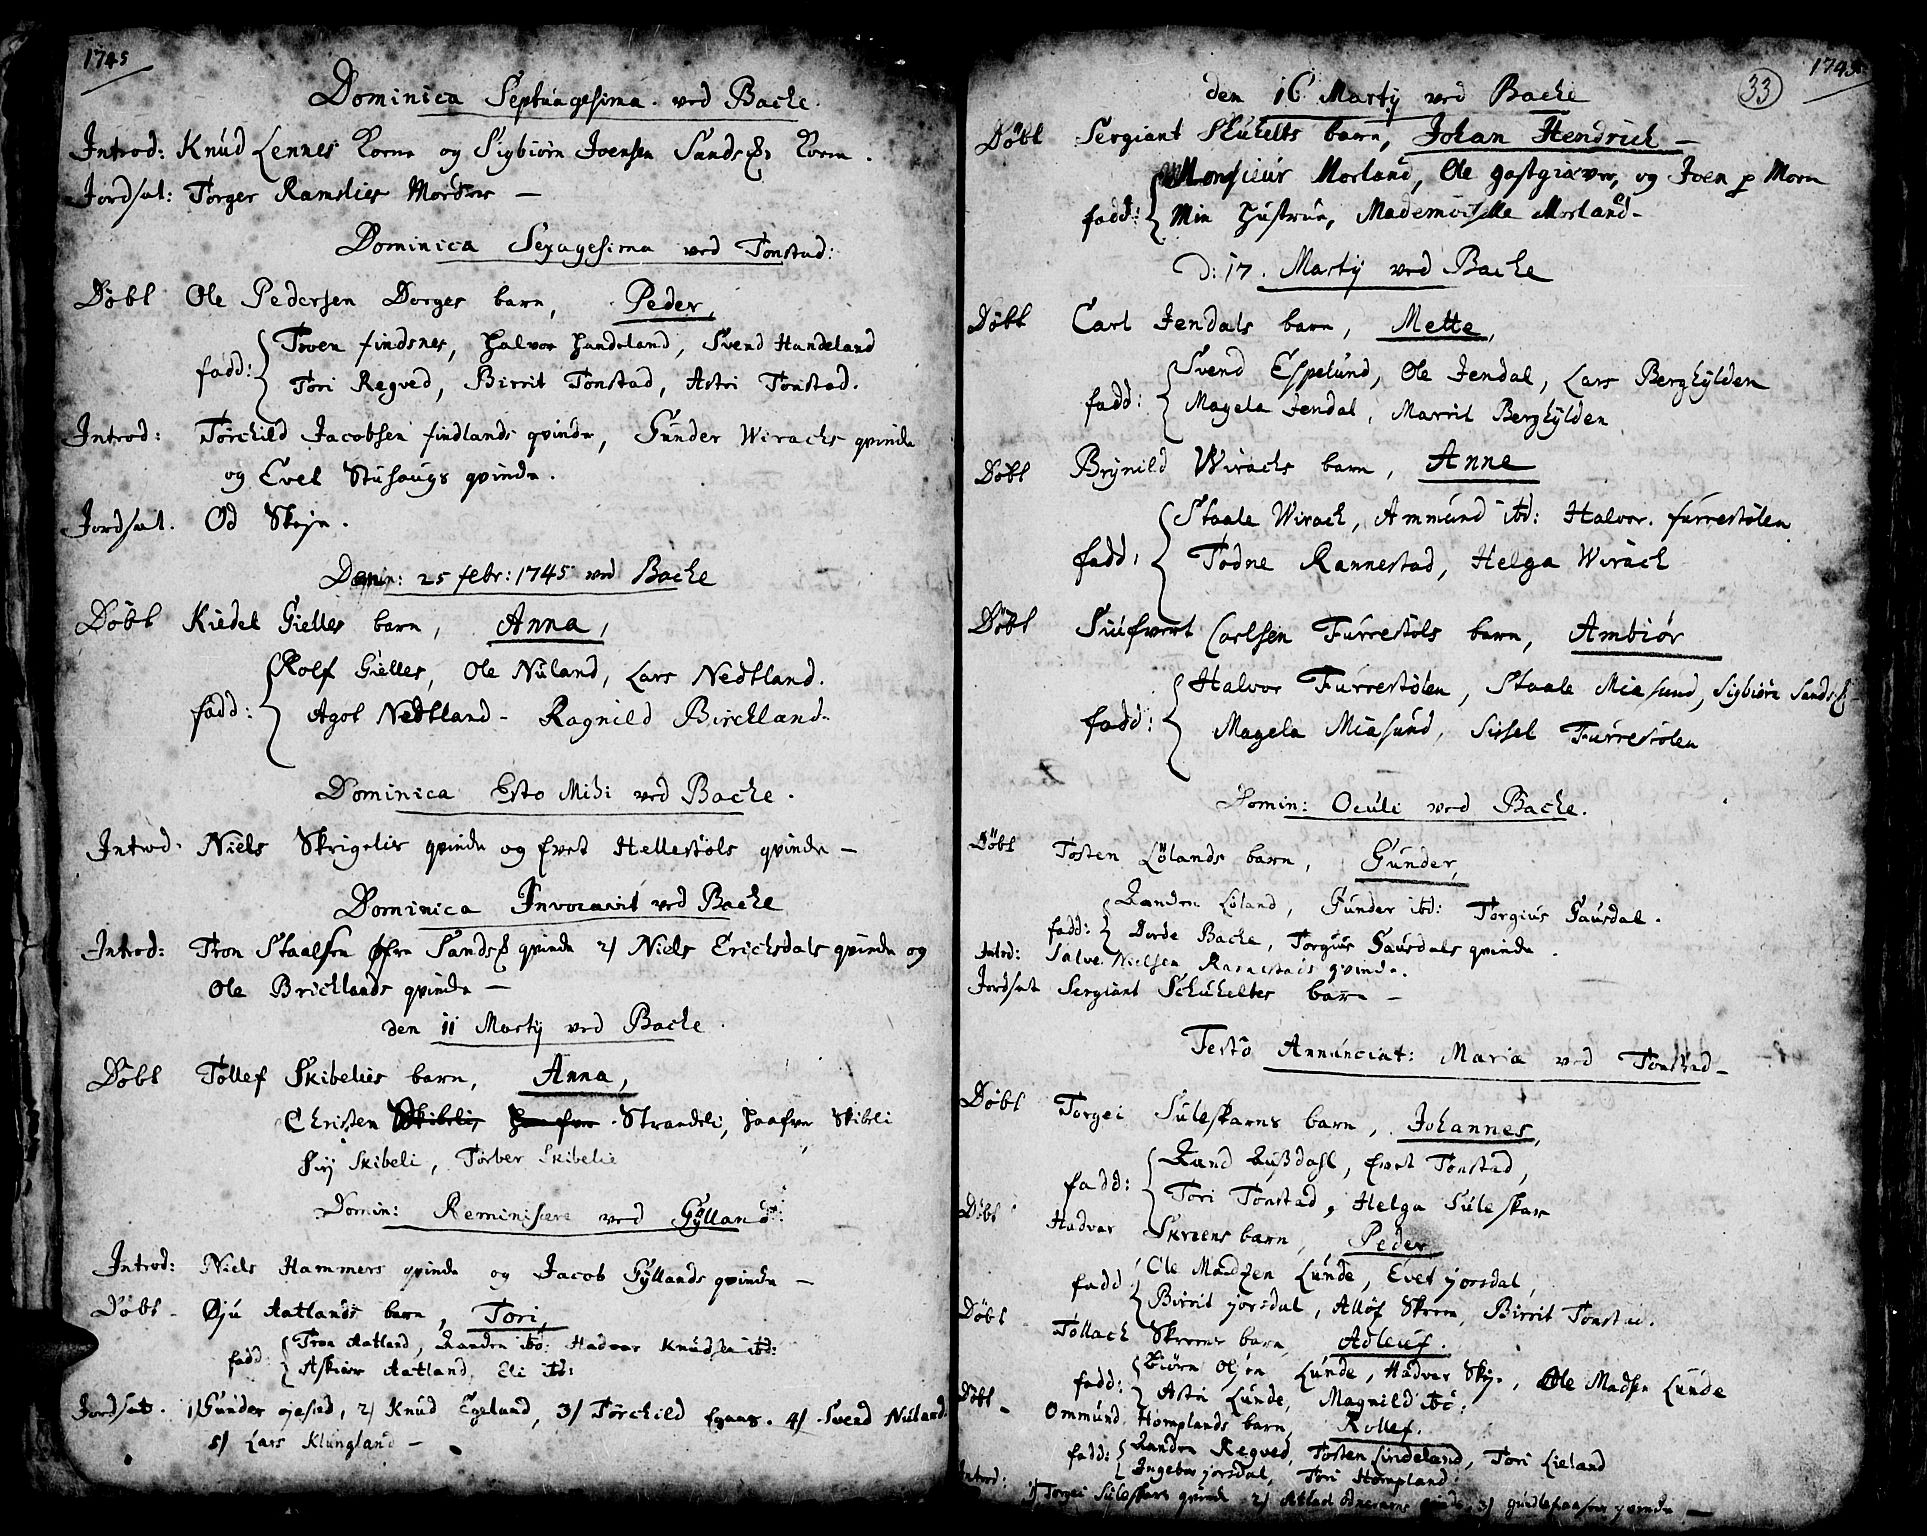 1745
Dominica Septuagesima. ved Bache.
Introd: Knud Lennes Kone og Sigbiørn Joensen Sands Kone.
Jordsat: Torger Ramslies Moder —
Dominica Sexagesima ved Tonstad:
Døbt Ole Pedersen Dorges barn, Peder,
Toven findsnes, Halvor Handeland, Svend Handeland
fadd: Tori Regved, Birrit Tonstad, Astri Tonstad.
Introd: Torchild Jacobsen findlands qvinde, Gunder Wirachs qvinde
og Evet Stuhougs qvinde.
Jordsat. Od Skeje.
Domin: 25 febr: 1745 ved Bache
Døbt Kiedel Gielles barn, Anna,
Rolf Gielles, Ole Nuland, Lars Nedtland.
fadd: Agot Nedtland - Ragnild Birchland.
Dominica Esto Mihi ved Bache.
Introd. Niels Skrigelies qvinde og Evet Hellestøls qvinde —
Dominica Invocavit ved Bache
Introd: Tron Staalsen Øfre Sands qvinde 2) Niels Erichsdals qvinde og
Ole Bricklands qvinde —
den 11 Martij ved Bache.
Døbt Tollef Skibelies barn, Anna,
Christen Skibeli, Haafver Strandeli, Haafver Skibeli
Sirj Skibeli, Torber Skibelie
Domin: Reminiscere ved Gylland:
Introd: Niels Hammers qvinde og Jacob Gyllands qvinde —
Døbt - Øju Aatlands barn, Tori,
Tron Aatland, Randen ibd: Hadvar Knudsen ibd:
fadd: Askier Aatland, Eli ibd:
Jordsat. 1) Gunder , 2) Knud Egeland, 3) Torchild Egaas. 4) Svend Nuland
5) Lars Klungland —
1745
33
den 16 Martij ved Bache
Døbt Sergiant Schuhelts barn, Johan Hendrich —
Monsieur Morland, Ole gastgiæver, og Joen p Moen
fadd: Min Hustrue, Mademoiselle Morland -
D: 17. Martij ved Bache
Døbt Carl Jendals barn, Mette,
Svend Espelund, Ole Jendal, Lars Berghylden
fadd: Magela Jendal, Marrit Berghylden
Døbt Brynild Wirachs barn, Anne
Staale Wirach, Ammund ibd: Halvor. furrestølen
fadd: Todne Rannestad, Helga Wirach
Døbt Siufvert Carlsen Furrestøls barn, Ambiør
Halvor Furrestølen, Staale Miasund, Sigbiørn Sands
fadd: Magela Miasund, Sissel Furrestølen
Domin: Oculi ved Bache.
Døbt Tosten Lølands barn, Gunder,
Randen Løland, Gunder ibd: Torgius Gausdal.
fadd: Dorde Bache, Torgius Gausdals qvinde.
Introd: Salve Nielsen Rannestads qvinde.
Jordsat Sergiant Schuheltes barn —
Festo Annunciat: Maria ved Tonstad -
Døbt Torgei Suleskarns barn, Johannes,
Rand , Evet Tonstad,
fadd: Tori Tonstad, Helga Suleskar
Døbt Hadvar Skreens barn, Peder
Ole Madzen Lunde, Evet jorsdal,
fadd: Birrit jorsdal, Alløf Skreen, Birrit Tonstad.
Døbt Tollach Skreens barn, Adleuf.
Biørn Olsen Lunde, Hadvar Skej, Ole Madsen Lunde
fadd: Astri Lunde, Magnild ibd:
Døbt - Ommund Homplands barn, Rollef.
fadd: Randen Regved, Tosten Lindeland, Tori Lieland
Ingebor jorsdal, Tori Hompland
Introd: 1) Torgei Suleskars qvinde 2) qvinde, 3) qvinde —